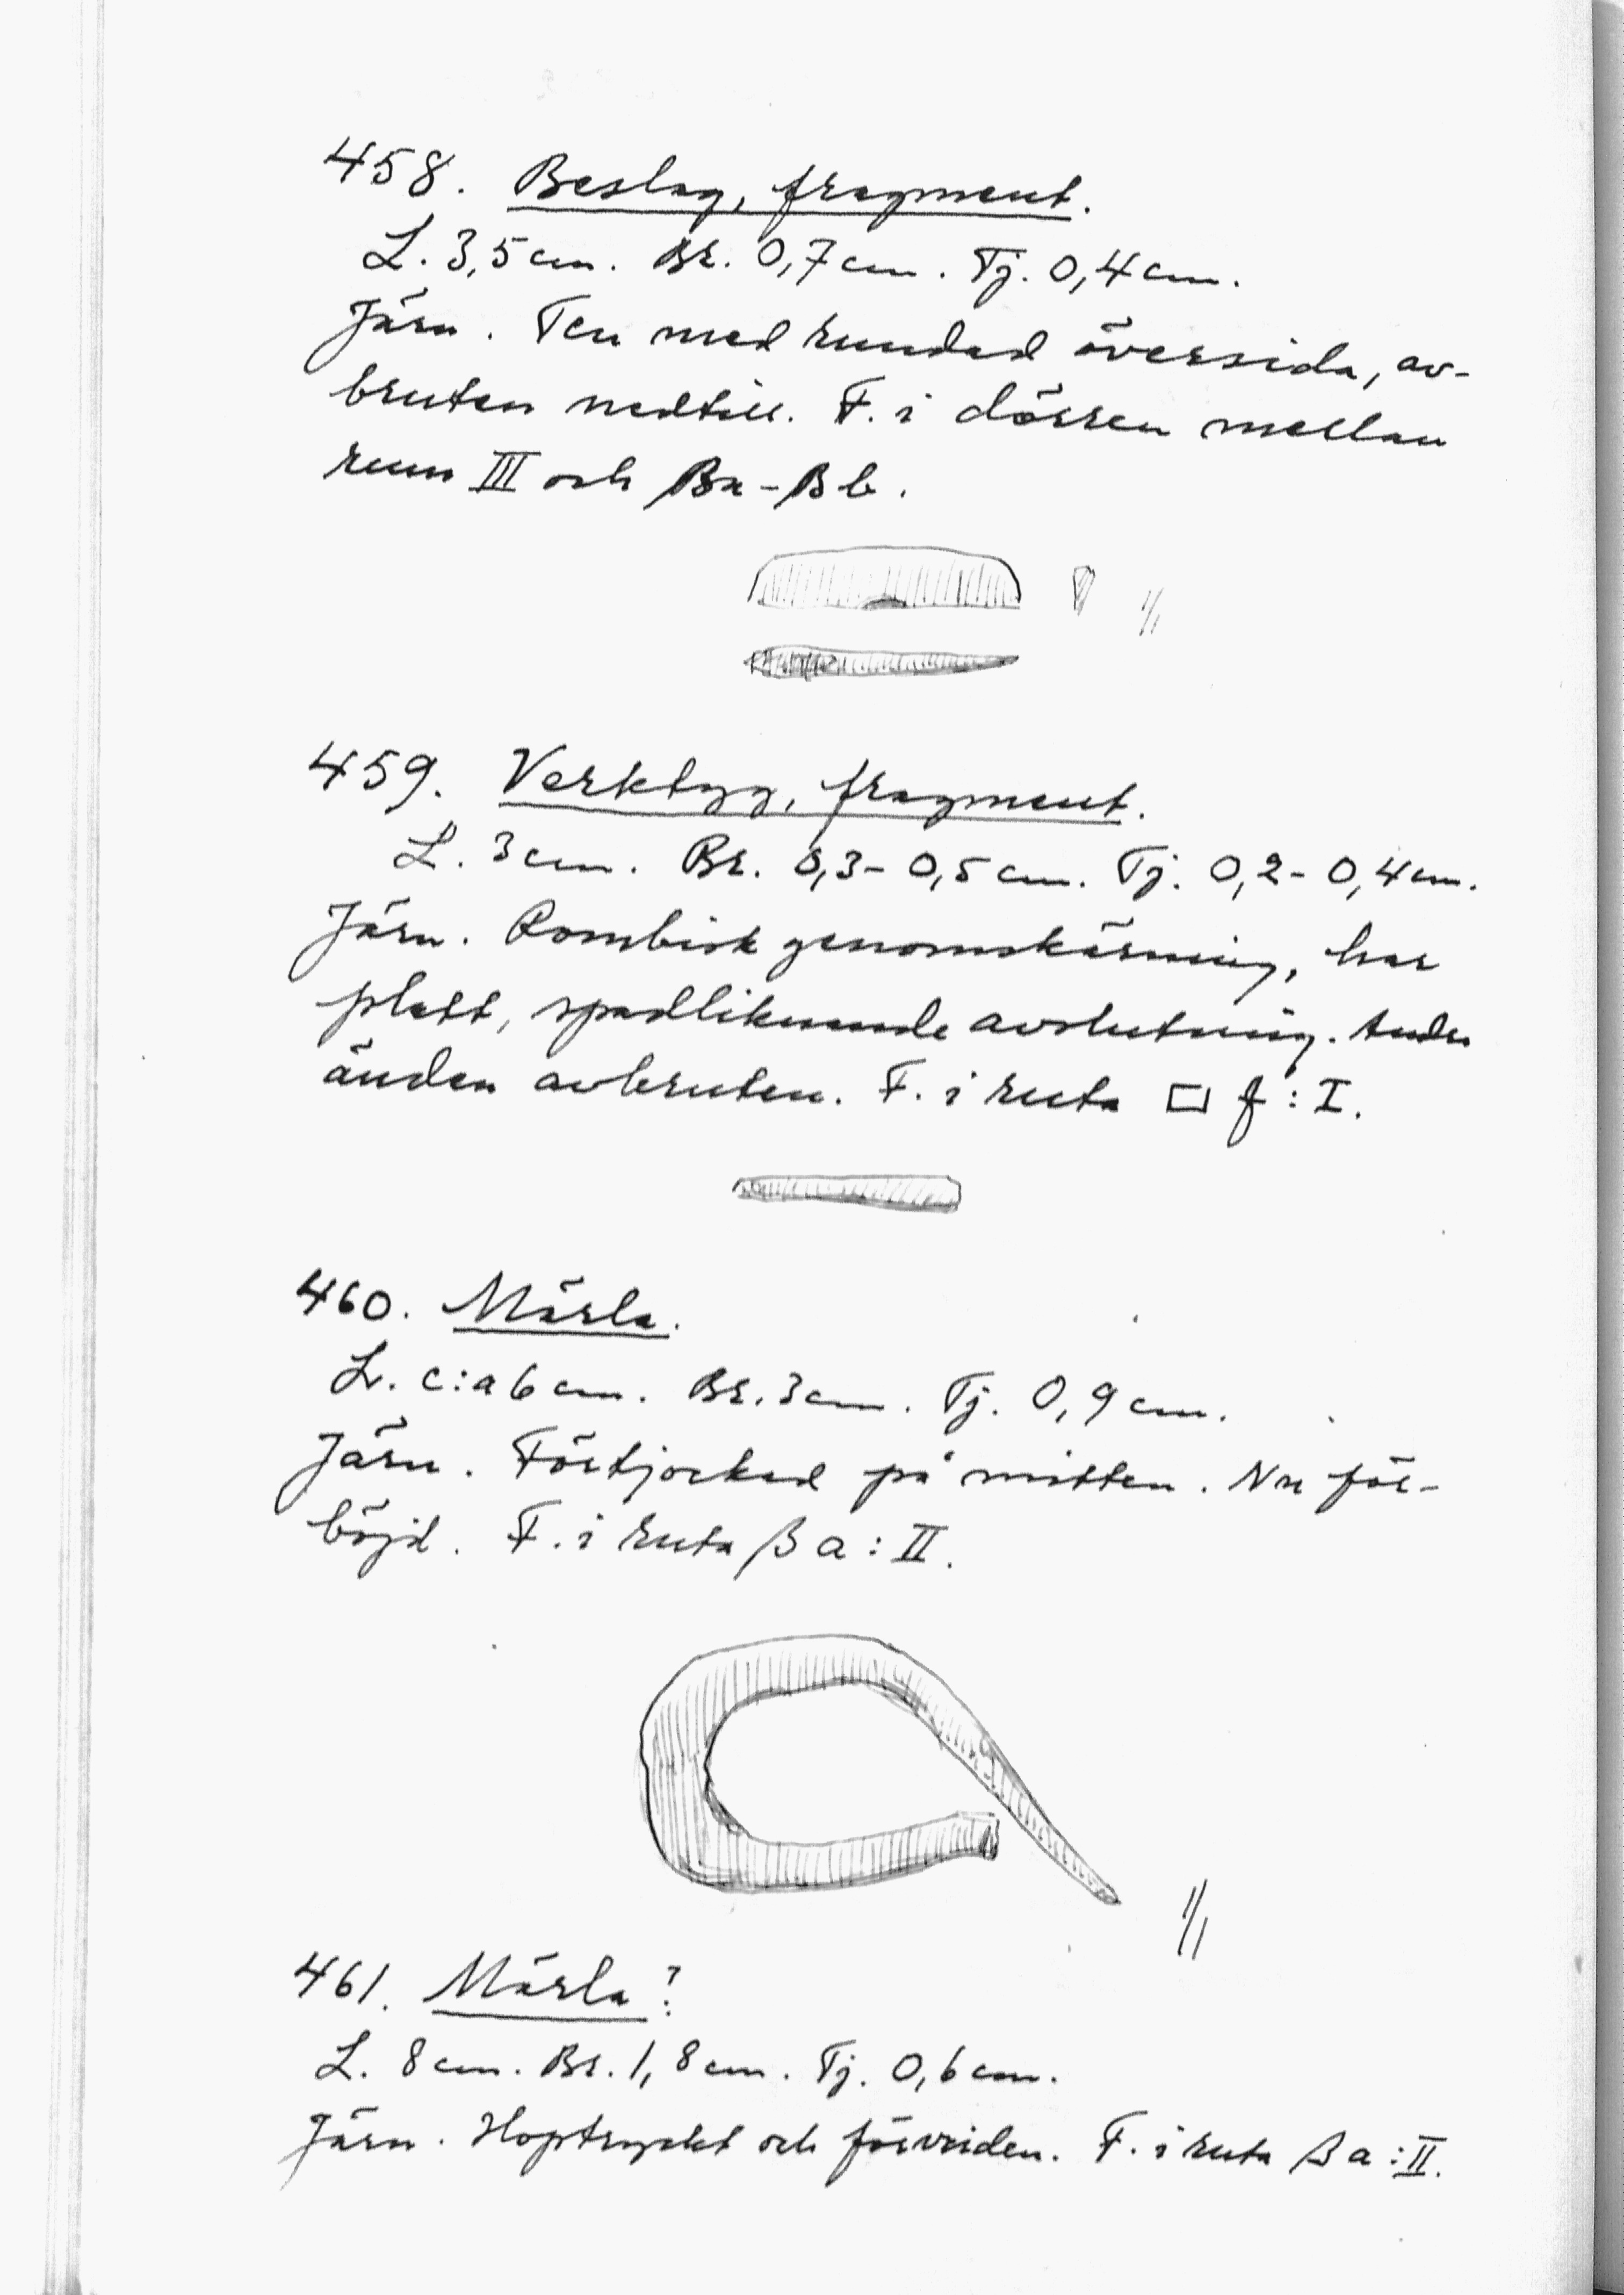 458. Beslag, fragment.
L. 3,5 cm. Br. 0,7 cm. Tj. 0,4 cm.
Järn. Ten med rundad översida, av-
bruten nedtill. F. i dörren mellan
rum III och βa-βb.
1/1
459. Verktyg, fragment.
L. 3 cm. Br. 0,3-0,5 cm. Tj. 0,2-0,4 cm.
Järn. Rombisk genomskärning, har
platt, spadliknande avslutning. Andra
änden avbruten. F. i ruta □ f:I.
460. Märla.
L. c:a 6 cm. Br. 3 cm. Tj. 0,9 cm.
Järn. Förtjockad på mitten. Nu för-
böjd. F. i ruta βa:II.
1/1
461. Märla?
L. 8 cm. Br. 1,8 cm. Tj. 0,6 cm.
Järn. Hoptryckt och förvriden. F. i ruta βa:II.